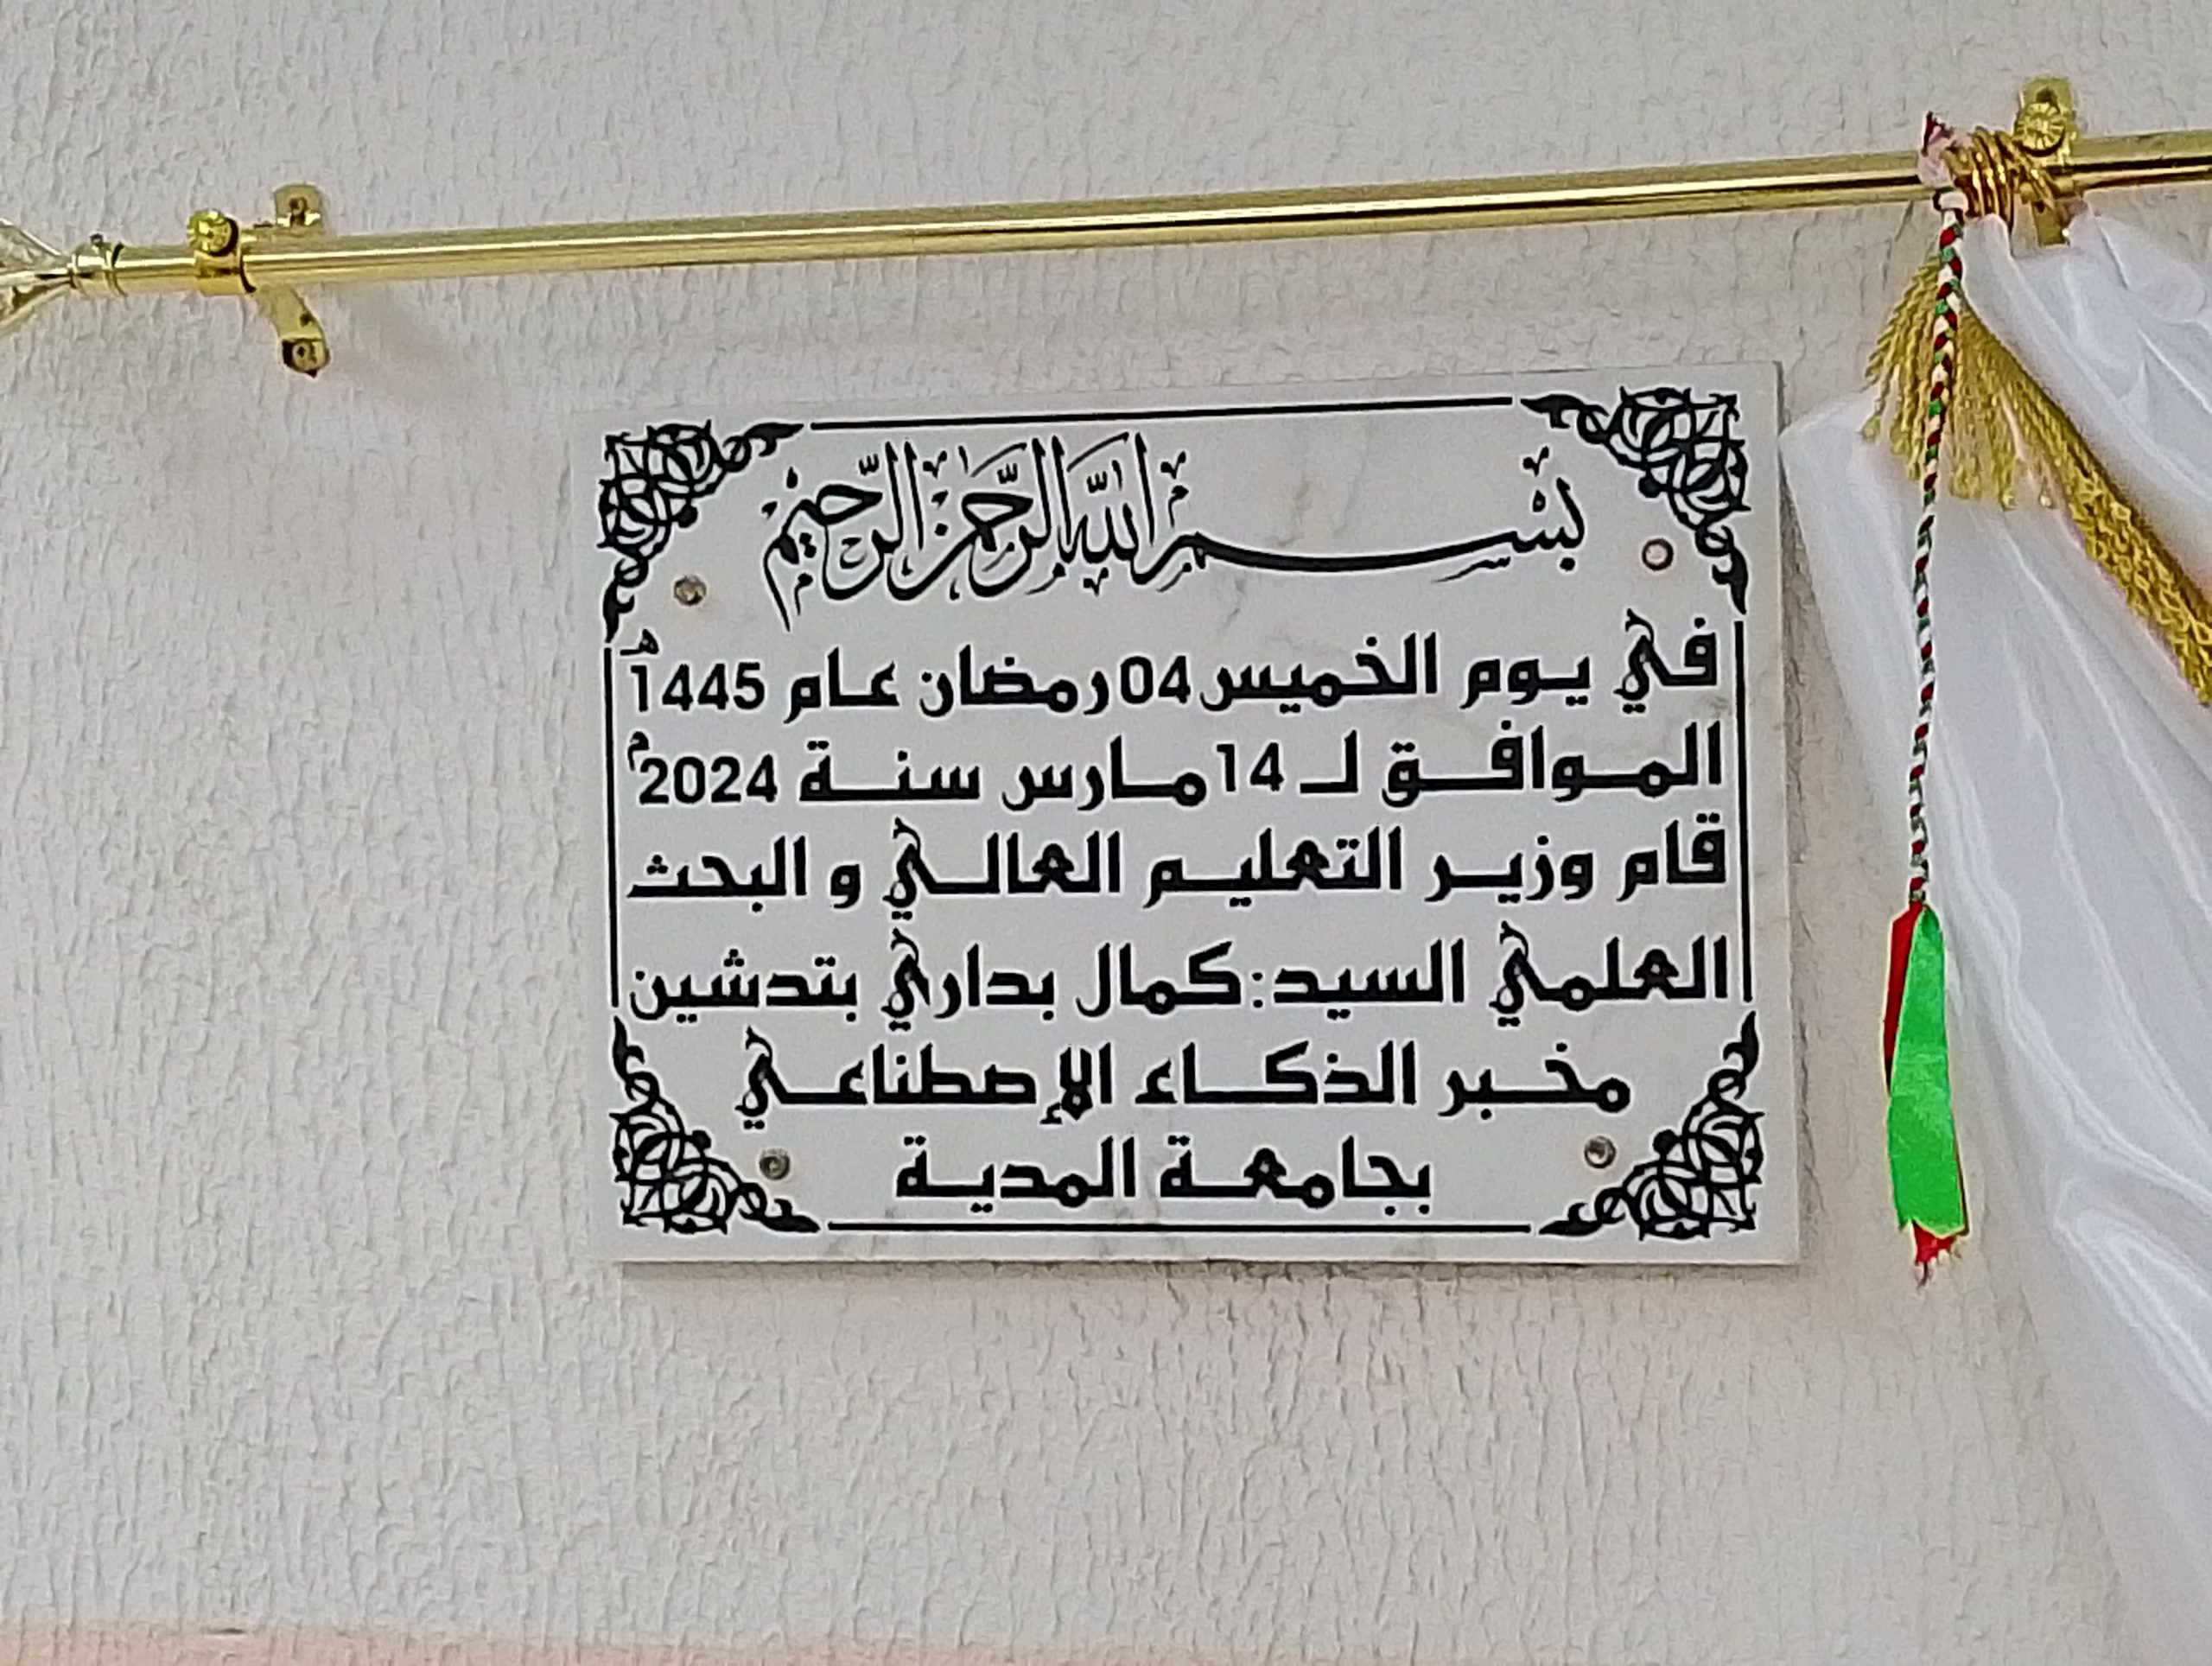 بسم الله الرحمن الرحيم
في يوم الخميس 04 رمضان عام 1445هـ
الموافق لـ 14 مارس سنة 2024م
قام وزير التعليم العالي و البحث
العلمي السيد: كمال بداري بتدشين
مخبر الذكاء الإصطناعي
بجامعة المدية